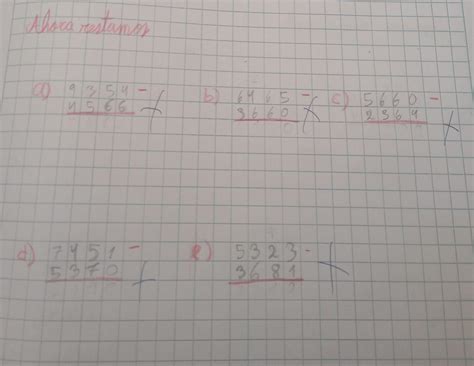 Ahora restamos
a) 9354 - b) 6465 - c) 5660 -
4566 3660 2364
d) 7451 - e) 5323 -
5370 3681